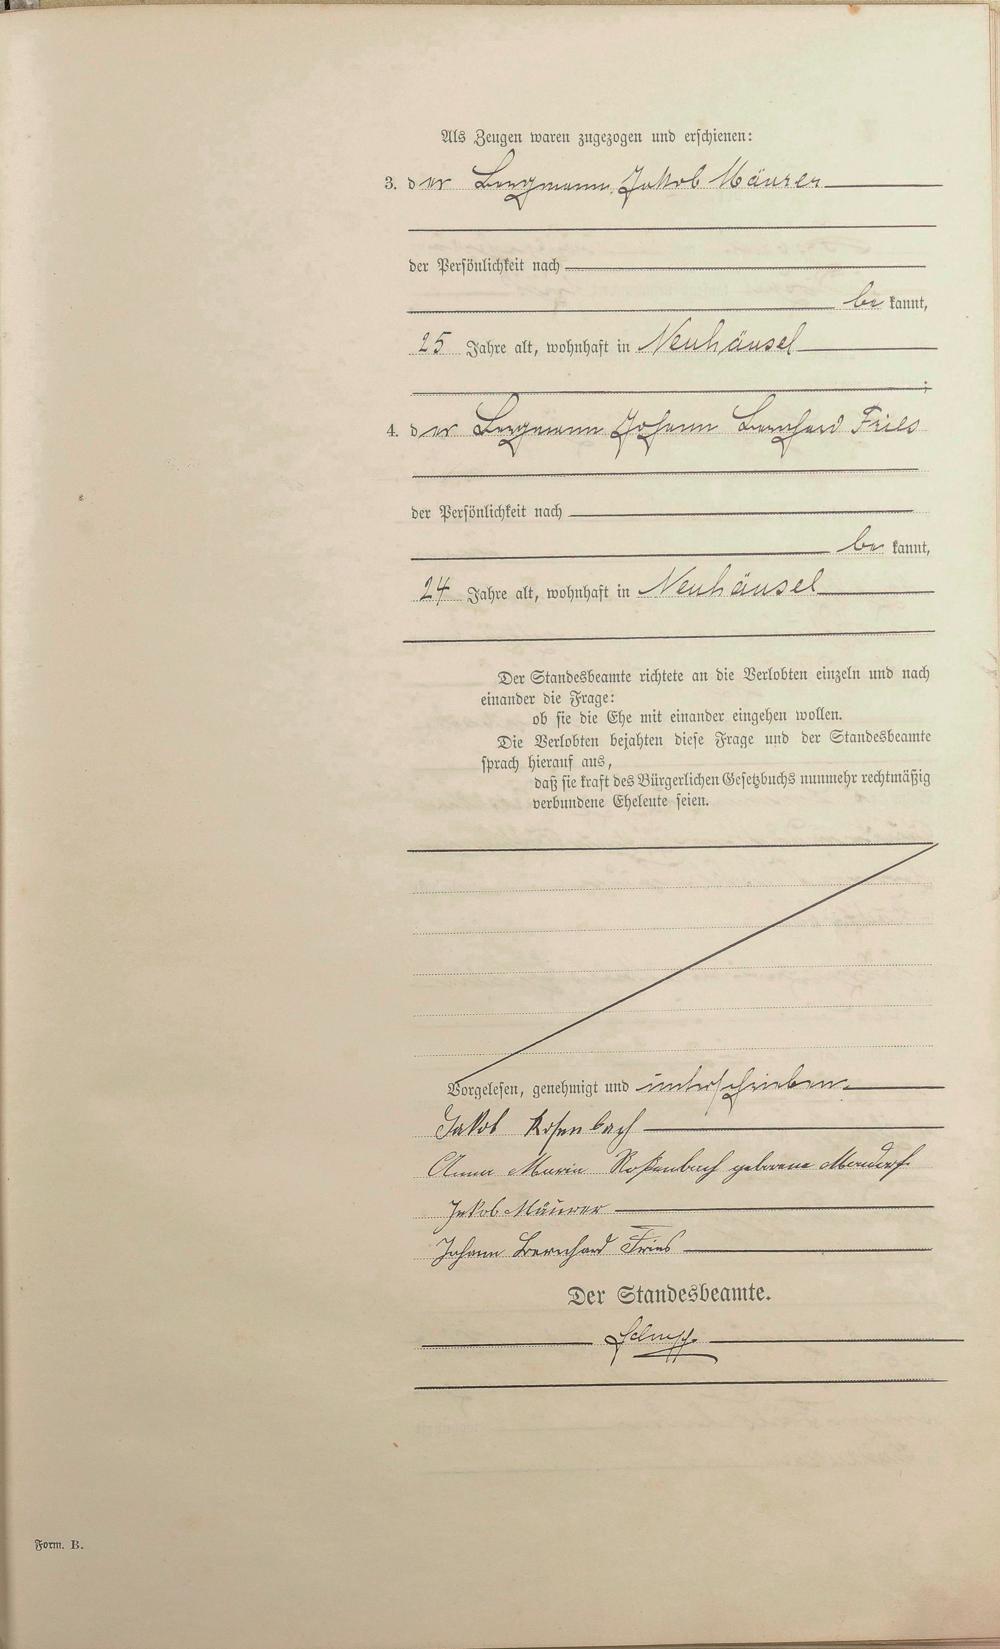 Als Zeugen waren zugezogen und erschienen:
3. der Bergmann Jakob Mäurer
der Persönlichkeit nach
bekannt,
25 Jahre alt, wohnhaft in Neuhäusel
;
4. der Bergmann Johann Bernhard Fries
der Persönlichkeit nach
bekannt,
24 Jahre alt, wohnhaft in Neuhäusel
Der Standesbeamte richtete an die Verlobten einzeln und nach
einander die Frage:
ob sie die Ehe mit einander eingehen wollen.
Die Verlobten bejahten diese Frage und der Standesbeamte
sprach hierauf aus,
daß sie kraft des Bürgerlichen Gesetzbuchs nunmehr rechtmäßig
verbundene Eheleute seien.
Vorgelesen, genehmigt und unterschrieben.
Jakob Rosenbach
Anna Maria Roßenbach geborene
Jakob Mäurer
Johann Bernhard Fries
Der Standesbeamte.
Form. B.